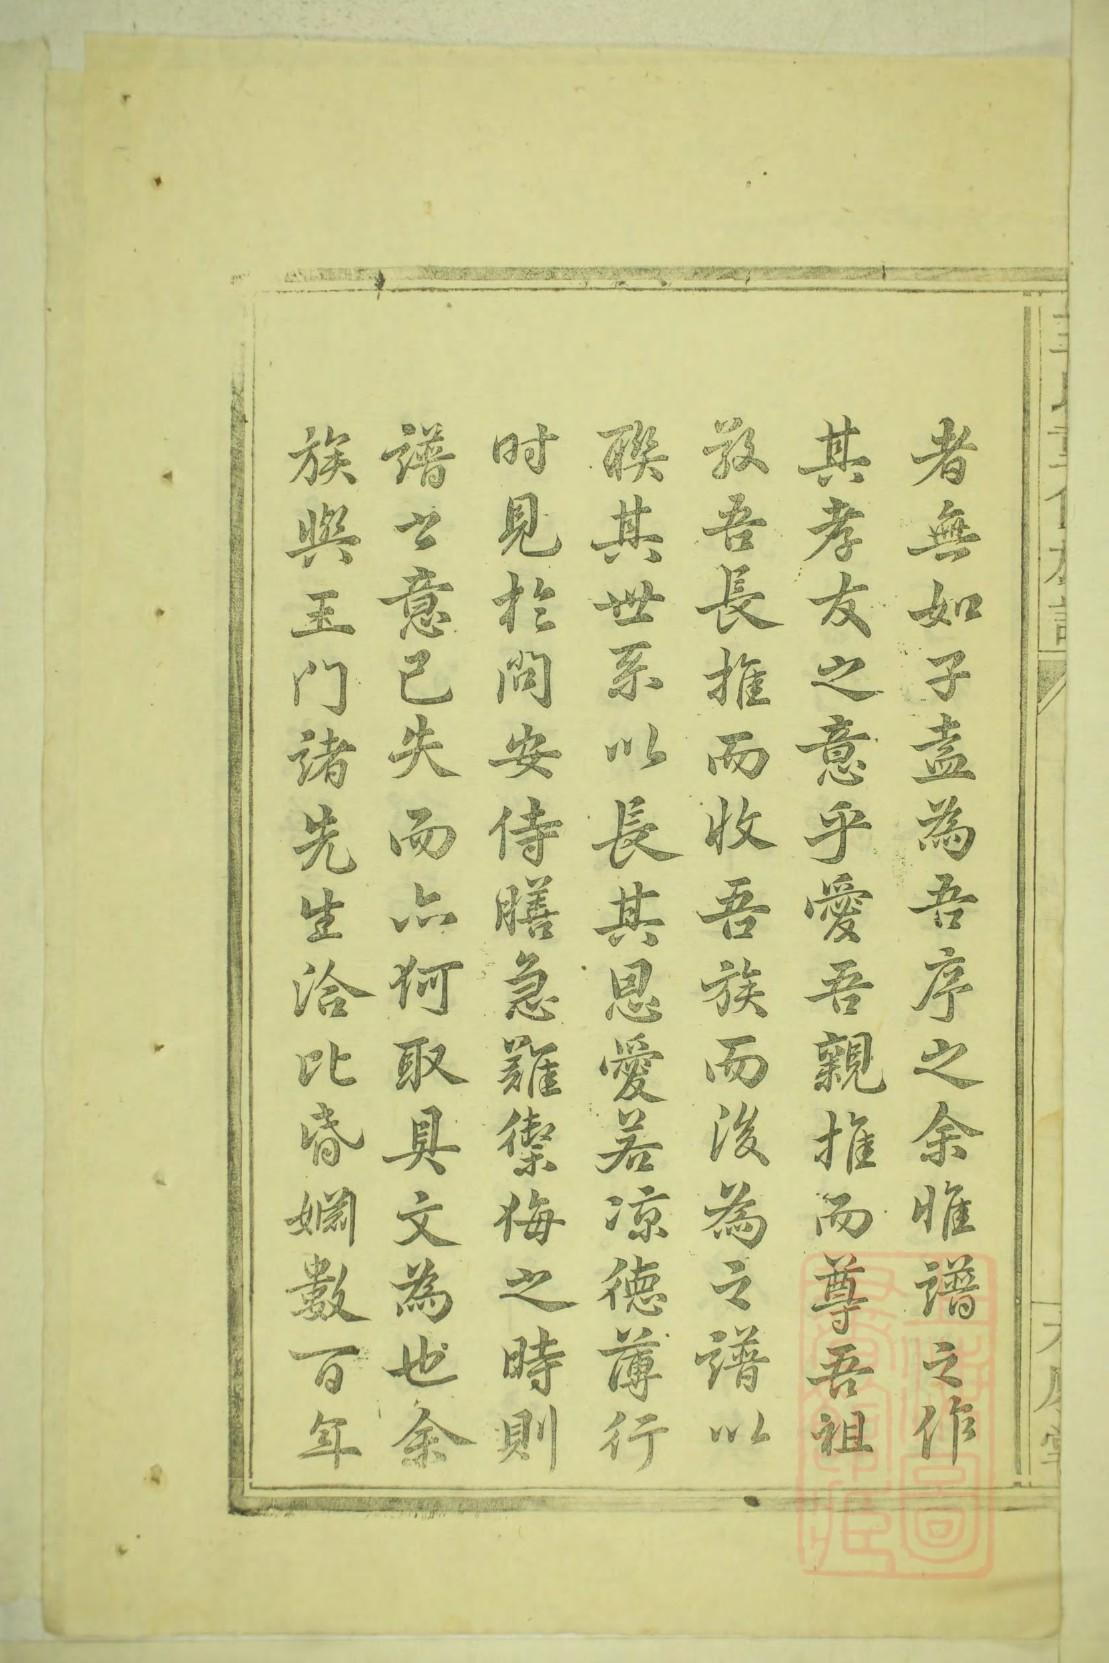 者無如子盍為吾序之余惟譜之作
其孝友之意乎愛吾親推而尊吾祖
敬吾長推而收吾族而後為之譜以
聯其世系以長其恩愛若凉德薄行
时見於問安侍膳急難禦侮之時則
譜之意已失而亦何取具文為也余
族與王门諸先生洽比昏婣數百年